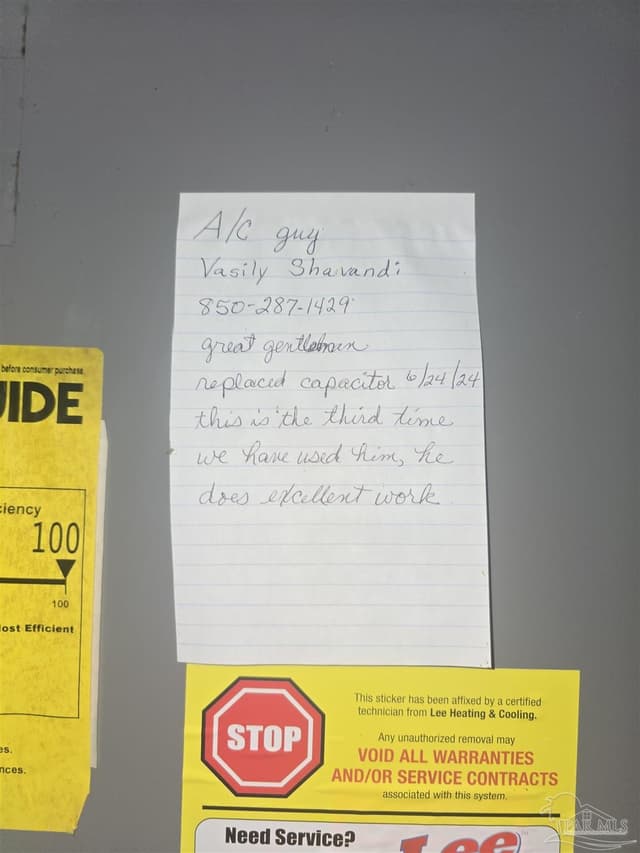 A/C guy
Vasily Shavandi
850-287-1429
great gentleman
replaced capacitor 6/24/24
this is the third time
we have used him, he
does excellent work
before consumer purchase.
UIDE
ciency
100
100
Most Efficient
es.
nces.
STOP
This sticker has been affixed by a certified
technician from Lee Heating & Cooling.
Any unauthorized removal may
VOID ALL WARRANTIES
AND/OR SERVICE CONTRACTS
associated with this system.
Need Service?
Lee
PAR MLS